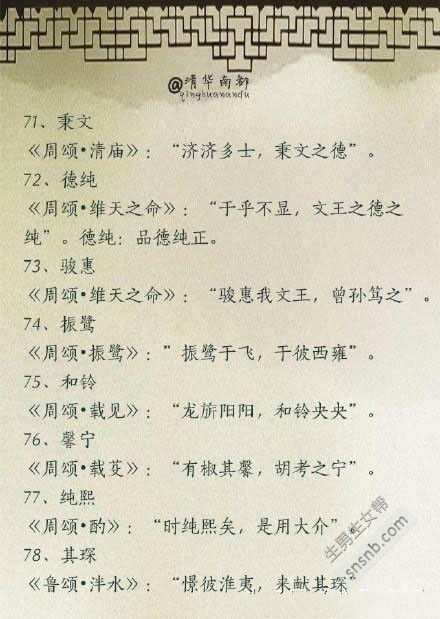 @清华南都
qinghuanandu
71、秉文
《周颂•清庙》：“济济多士，秉文之德”。
72、德纯
《周颂•维天之命》：“于乎不显，文王之德之
纯”。德纯：品德纯正。
73、骏惠
《周颂•维天之命》：“骏惠我文王，曾孙笃之”。
74、振鹭
《周颂•振鹭》：”振鹭于飞，于彼西雍”。
75、和铃
《周颂•载见》：“龙旂阳阳，和铃央央”。
76、馨宁
《周颂•载芟》：“有椒其馨，胡考之宁”。
77、纯熙
《周颂•酌》：“时纯熙矣，是用大介”。
78、其琛
《鲁颂•泮水》：“憬彼淮夷，来献其琛”
生男生女帮
snsnb.com